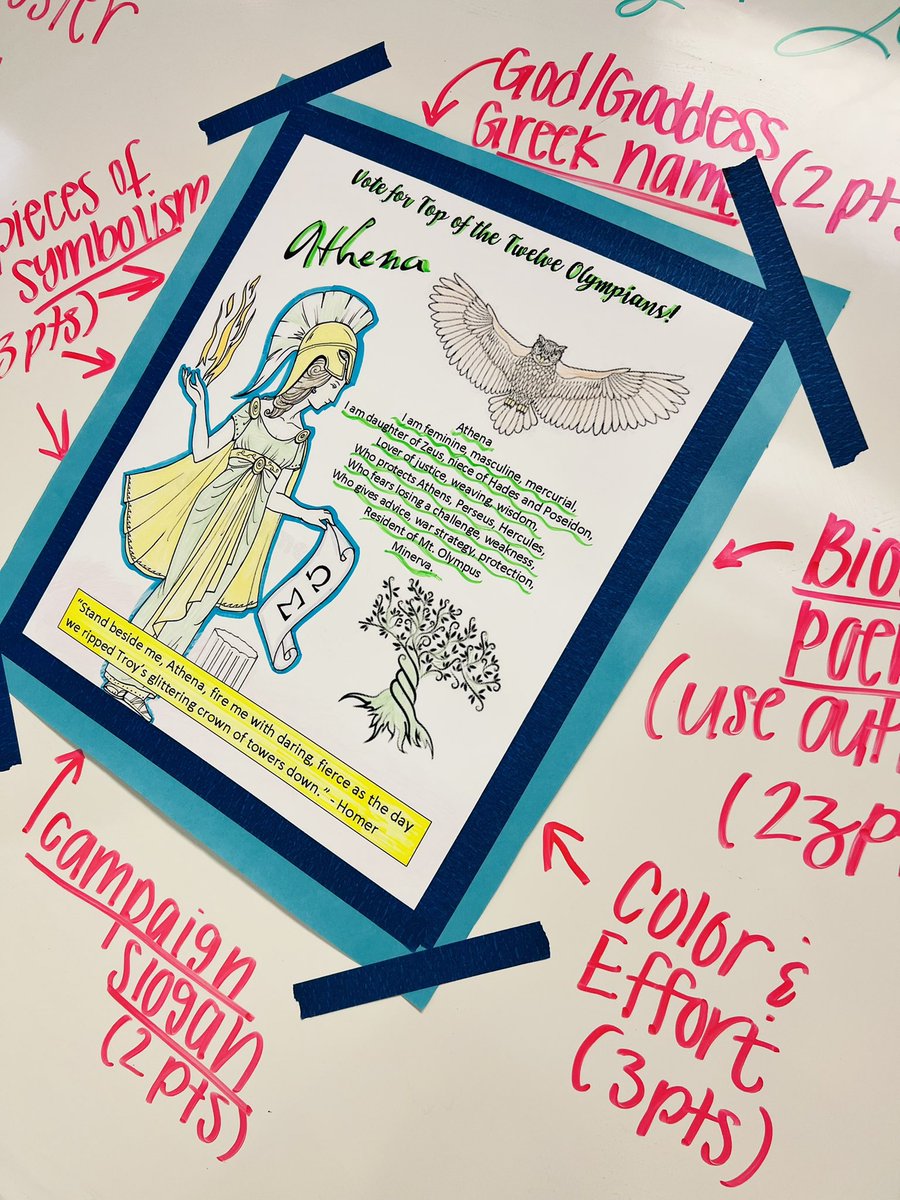 God/Goddess
Greek name (2 pts
pieces of
symbolism
3 pts)
Vote for Top of the Twelve Olympians!
Athena
Athena
I am feminine, masculine, mercurial,
I am daughter of Zeus, niece of Hades and Poseidon,
Lover of justice, weaving, wisdom,
Who protects Athens, Perseus, Hercules,
Who fears losing a challenge, weakness,
Who gives advice, war strategy, protection,
Resident of Mt. Olympus
Minerva.
"Stand beside me, Athena, fire me with daring, fierce as the day
we ripped Troy's glittering crown of towers down." - Homer
Bio
(use
campaign
slogan
(2 pts)
Color &
Effort
(3pts)